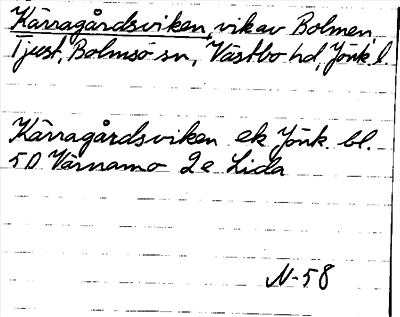 Kärragårdsviken, vik av Bolmen
Tjust, Bolmsö sn, Västbo hd, Jönk. l.
Kärragårdsviken ek Jönk. bl.
50 Värnamo 2e Lida
N-58